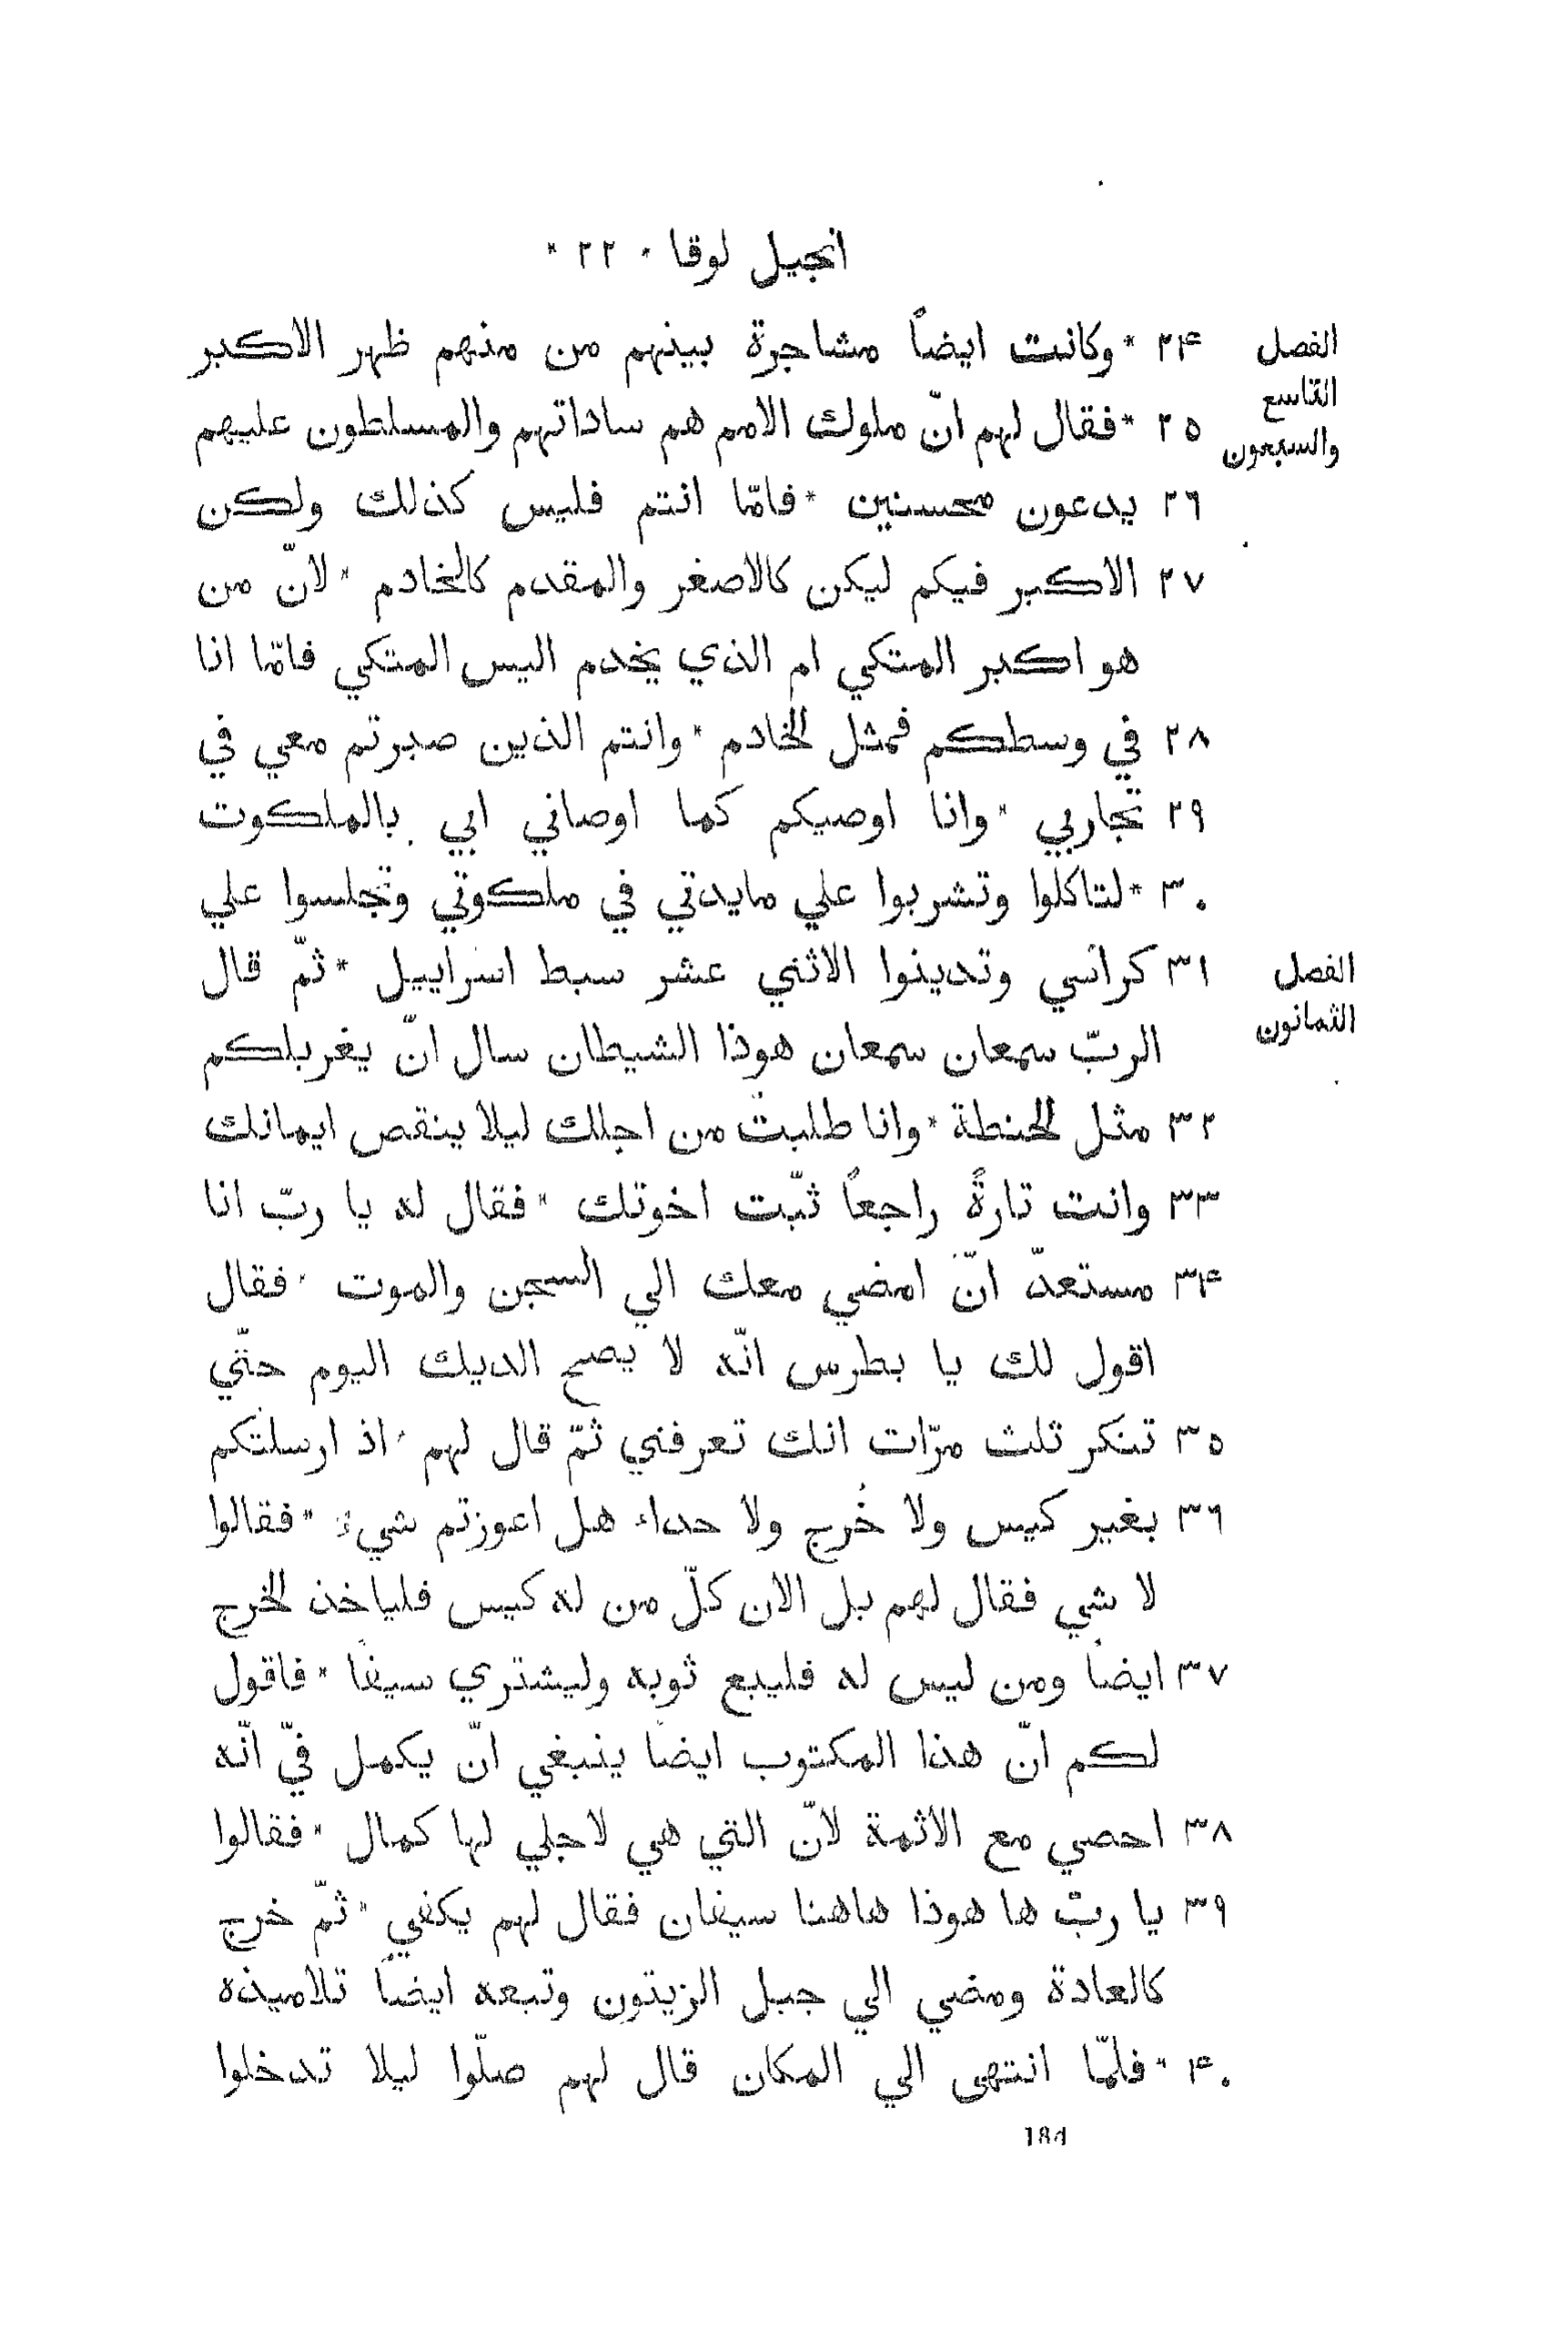 انجيل لوقا ٠ ٢٢ *
الفصل ٢۴ * وكانت ايضاً مشاجرة بينهم من منهم ظهر الاكبر
التاسع
٢٥ * فقال لهم انّ ملوك الامم هم ساداتهم والمسلطون عليهم
والسبعون
٢٦ يدعون محسنين * فامّا انتم فليس كذلك ولكن
٢٧ الاكبر فيكم ليكن كالاصغر والمقدم كالخادم * لانّ من
هو اكبر المتكي ام الذي يخدم اليس المتكي فامّا انا
٢٨ في وسطكم فمثل الخادم * وانتم الذين صبرتم معي في
٢٩ تجاربي * وانا اوصيكم كما اوصاني ابي بالملكوت
٣٠ * لتاكلوا وتشربوا علي مايدتي في ملكوتي وتجلسوا علي
الفصل ٣١ كراسي وتدينوا الاثني عشر سبط اسراييل * ثمّ قال
الثمانون
الربّ سمعان سمعان هوذا الشيطان سال انّ يغربلكم
٣٢ مثل الحنطة * وانا طلبت من اجلك ليلا ينقص ايمانك
٣٣ وانت تارةً راجعاً ثبّت اخوتك * فقال له يا ربّ انا
٣۴ مستعدّ انّ امضي معك الي السجن والموت * فقال
اقول لك يا بطرس انّه لا يصيح الديك اليوم حتّي
٣٥ تنكر ثلث مرّات انك تعرفني ثمّ قال لهم * اذ ارسلتكم
٣٦ بغير كيس ولا خُرج ولا حداء هل اعوزتم شيء * فقالوا
لا شي فقال لهم بل الان كلّ من له كيس فلياخذ الخرج
٣٧ ايضاً ومن ليس له فليبع ثوبه وليشتري سيفاً * فاقول
لكم انّ هذا المكتوب ايضاً ينبغي انّ يكمل فيّ انّه
٣٨ احصي مع الاثمة لانّ التي هي لاجلي لها كمال * فقالوا
٣٩ يا ربّ ها هوذا هاهنا سيفان فقال لهم يكفي * ثمّ خرج
كالعادة ومضي الي جبل الزيتون وتبعه ايضاً تلاميذه
۴٠ * فلمّا انتهي الي المكان قال لهم صلّوا ليلا تدخلوا
184